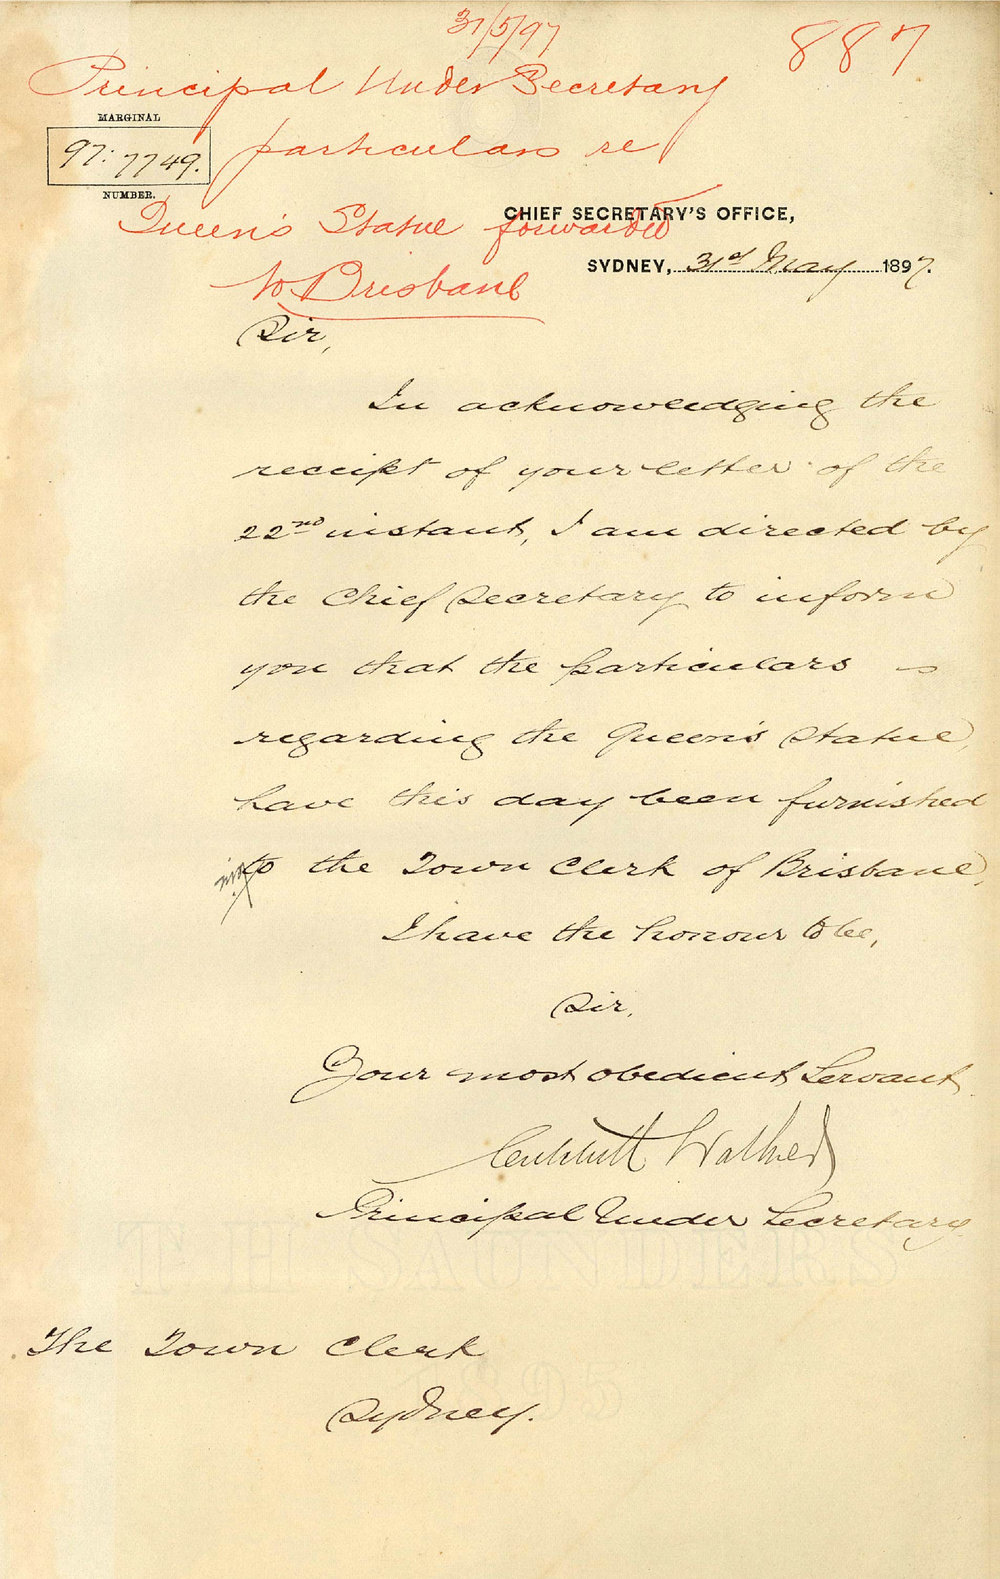 31/5/97
887
Principal Under Secretary
particulars re
Queen's Statue forwarded
to Brisbane
MARGINAL
97: 7749.
NUMBER.
CHIEF SECRETARY'S OFFICE,
SYDNEY, 31st May 1897.
Sir,
In acknowledging the
receipt of your letter of the
22nd instant, I am directed by
the Chief Secretary to inform
you that the particulars
regarding the Queen's Statue,
have this day been furnished
to the Town Clerk of Brisbane.
I have the honour to be,
Sir,
Your most obedient Servant
Critchett Walker
Principal Under Secretary.
The Town Clerk
Sydney.
T H SAUNDERS
1895